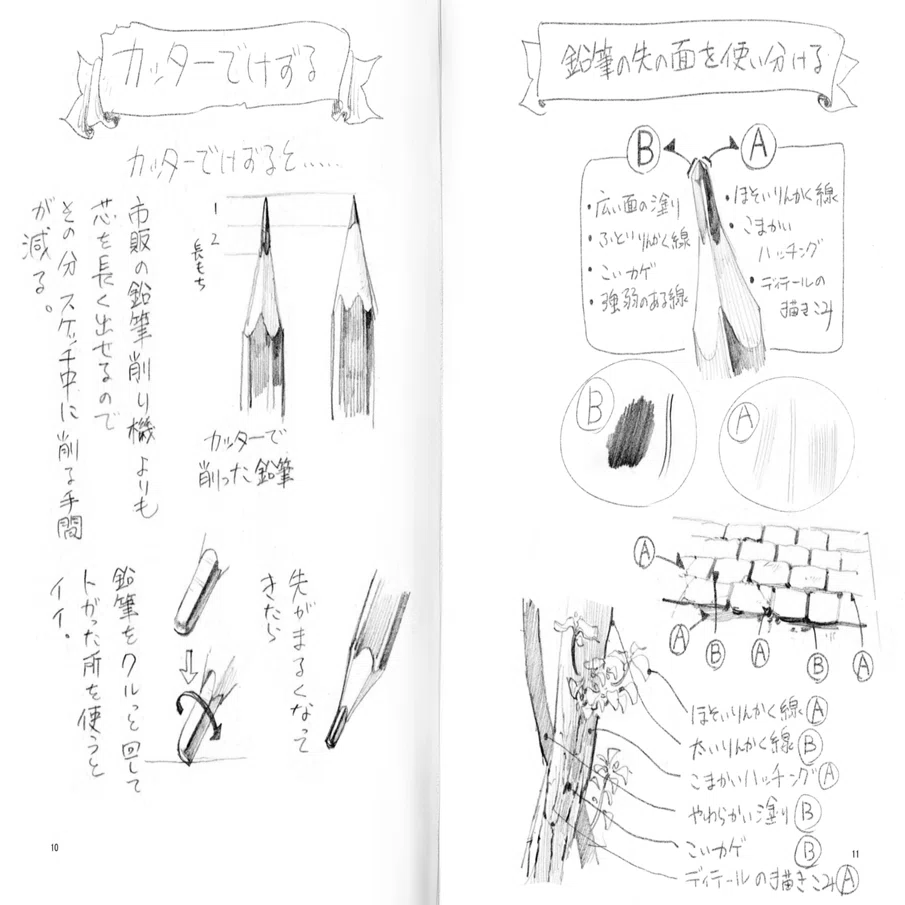 カッターでけずる
カッターでけずるそ......
市販の鉛筆削り機よりも
芯を長く出せるので
その分スケッチ中に削る手間
が減る。
1
2
長もち
カッターで
削った鉛筆
先がまるくなって
きたら
鉛筆をクルっと回して
トがった所を使うと
イイ。
10
鉛筆の先の面を使い分ける
B
A
・広い面の塗り
・ふというりんかく線
・こいカゲ
・強弱のある線
・ほそいりんかく線
・こまかい
ハッチング
・ディテールの
描きこみ
B
A
A
A
B
A
B
A
ほそいりんかく線 A
太いりんかく線 B
こまかいハッチング A
やわらかい塗り B
こいカゲ B
ディテールの描きこみ A
11